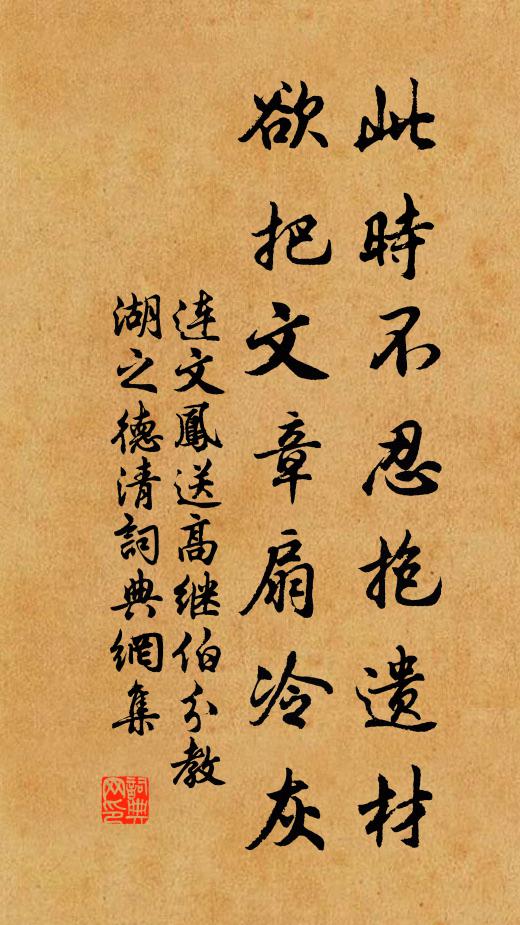 此時不忍抱遺材
欲把文章扇冷灰
連文鳳送高继伯分教
湖之德清詞典網集
詞典
网印